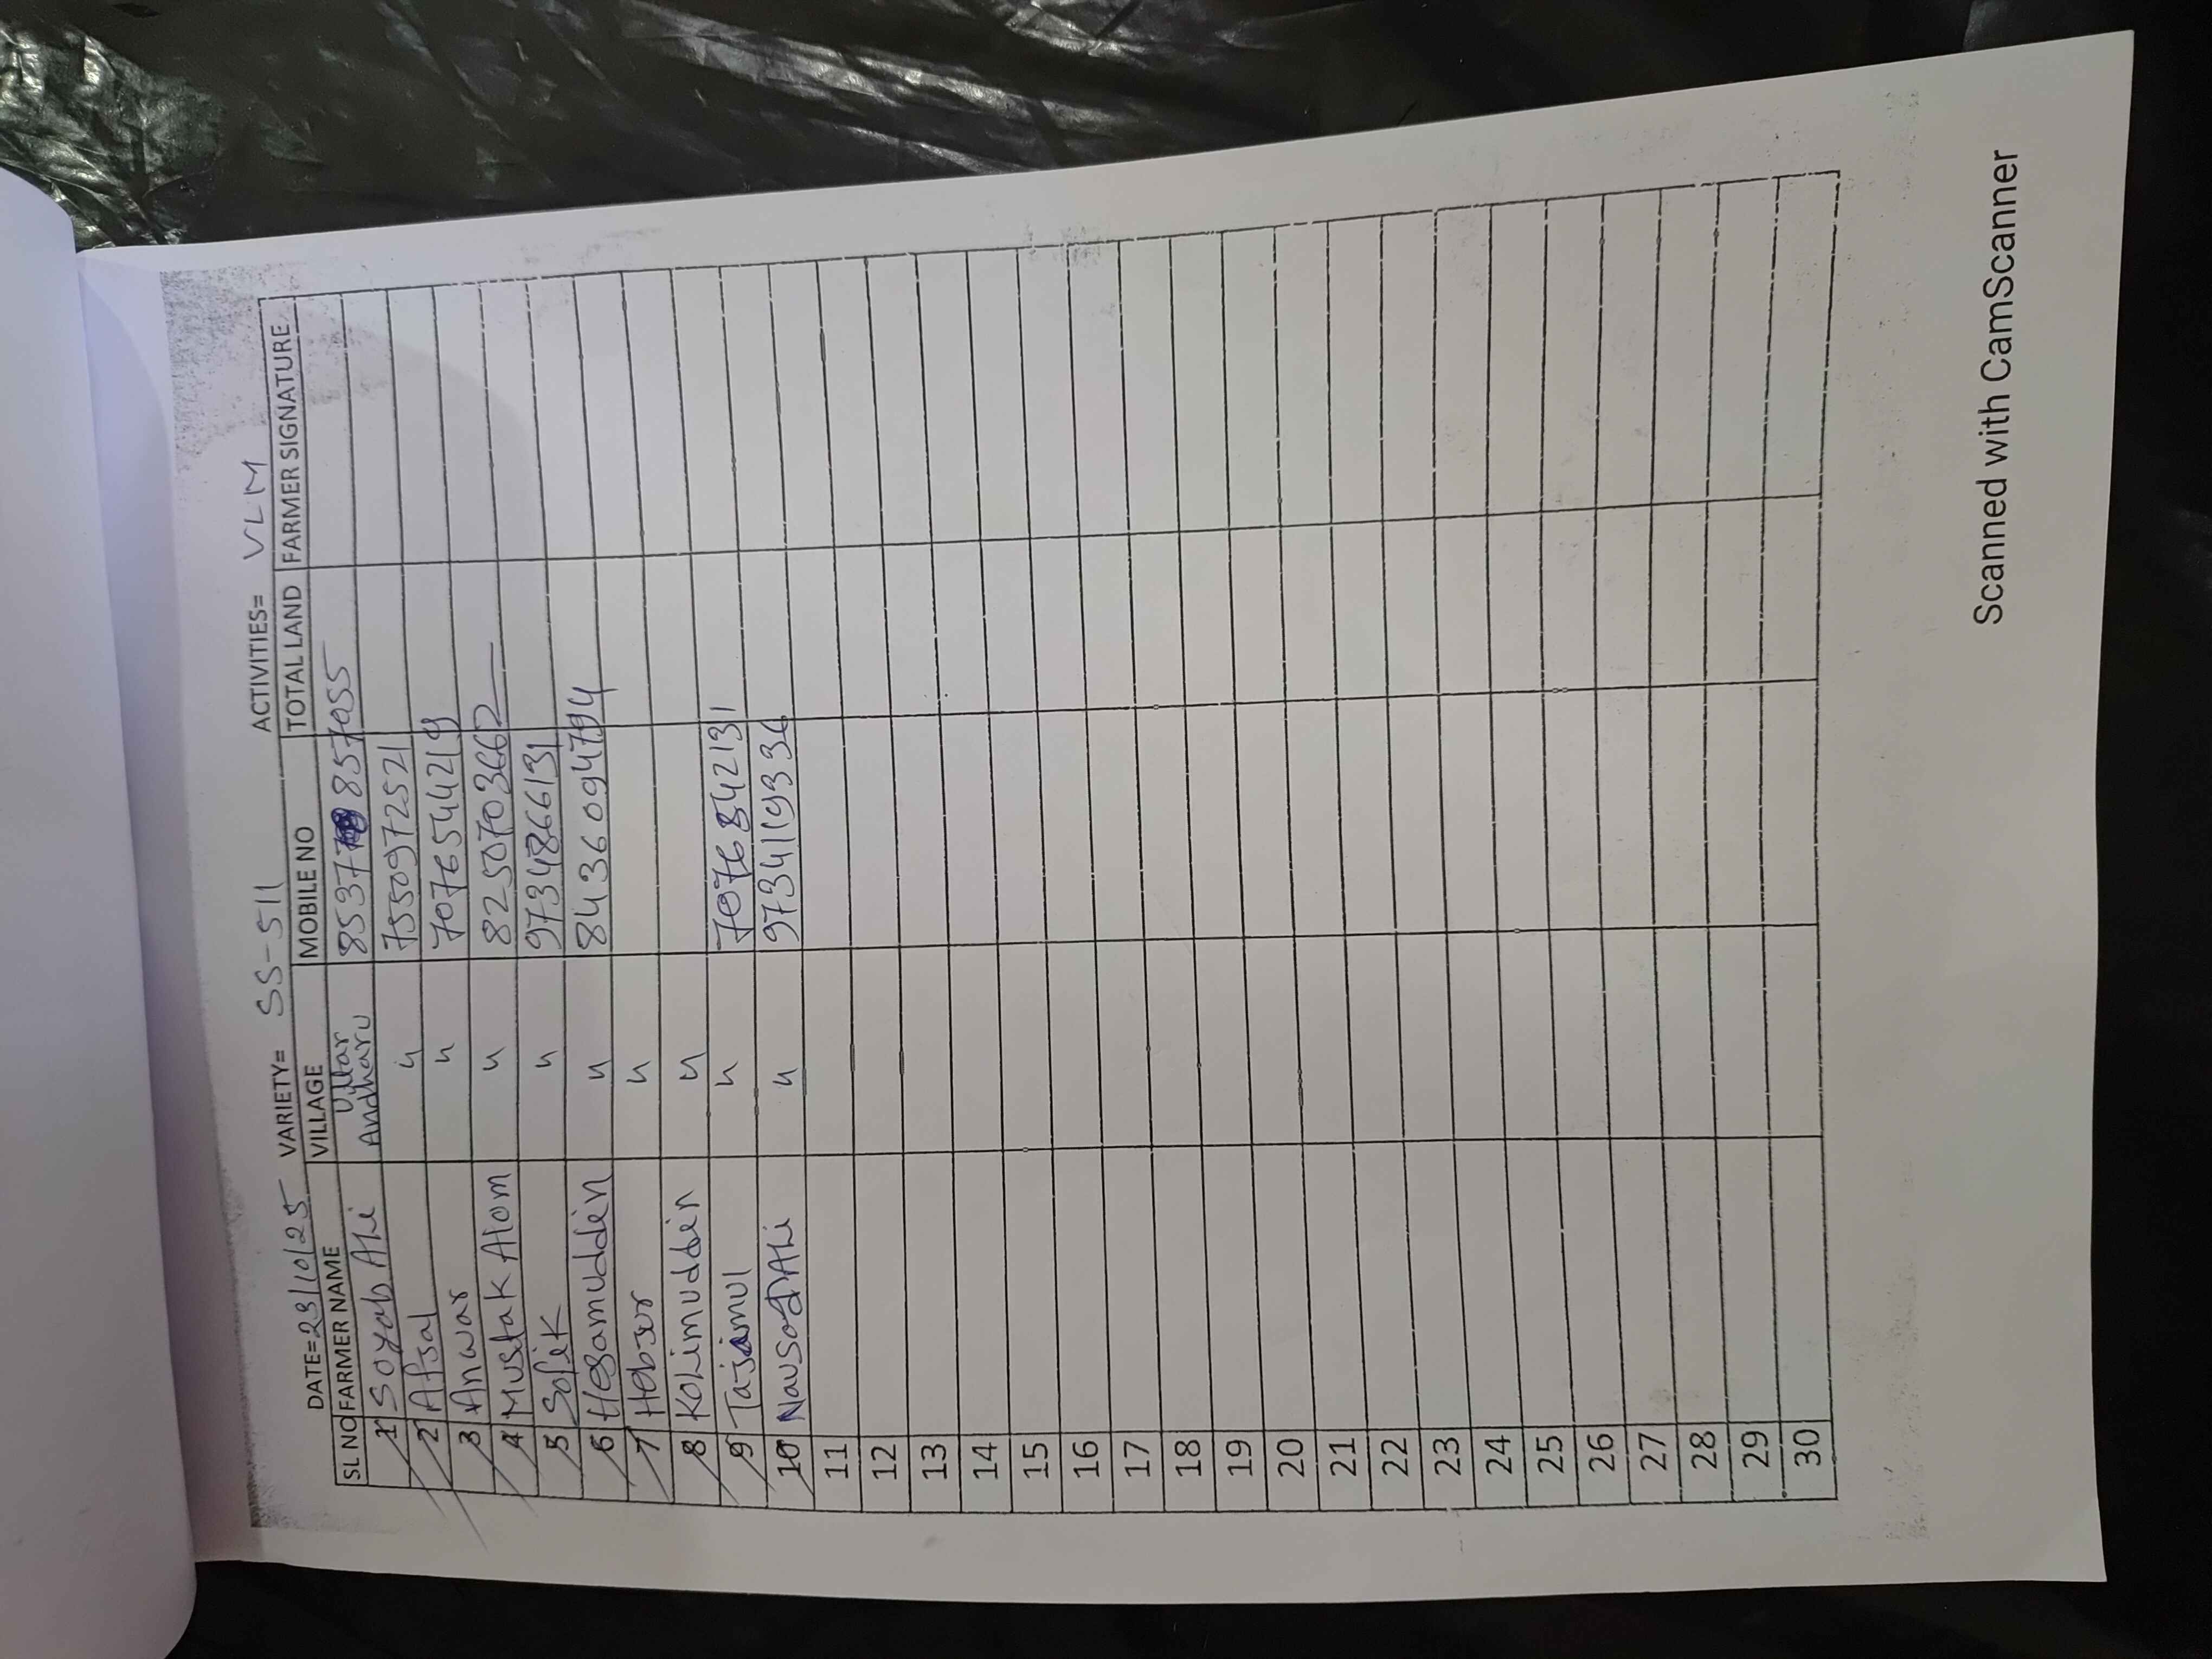 DATE=23/10/25 VARIETY= SS-511 ACTIVITIES= VLM
SL NO FARMER NAME VILLAGE MOBILE NO TOTAL LAND FARMER SIGNATURE
1 Soyab Ali Uttar Andharu 8537 857055
2 Afsal " 7550972521
3 Anwar " 7076544219
4 Mustak Alom " 8250703662
5 Sofik " 9734866131
6 Hesamuddin " 8436094794
7 "
8 Kolimuddin "
9 Tajamul " 7076842131
10 Nausod Ali "
11
12
13
14
15
16
17
18
19
20
21
22
23
24
25
26
27
28
29
30
Scanned with CamScanner